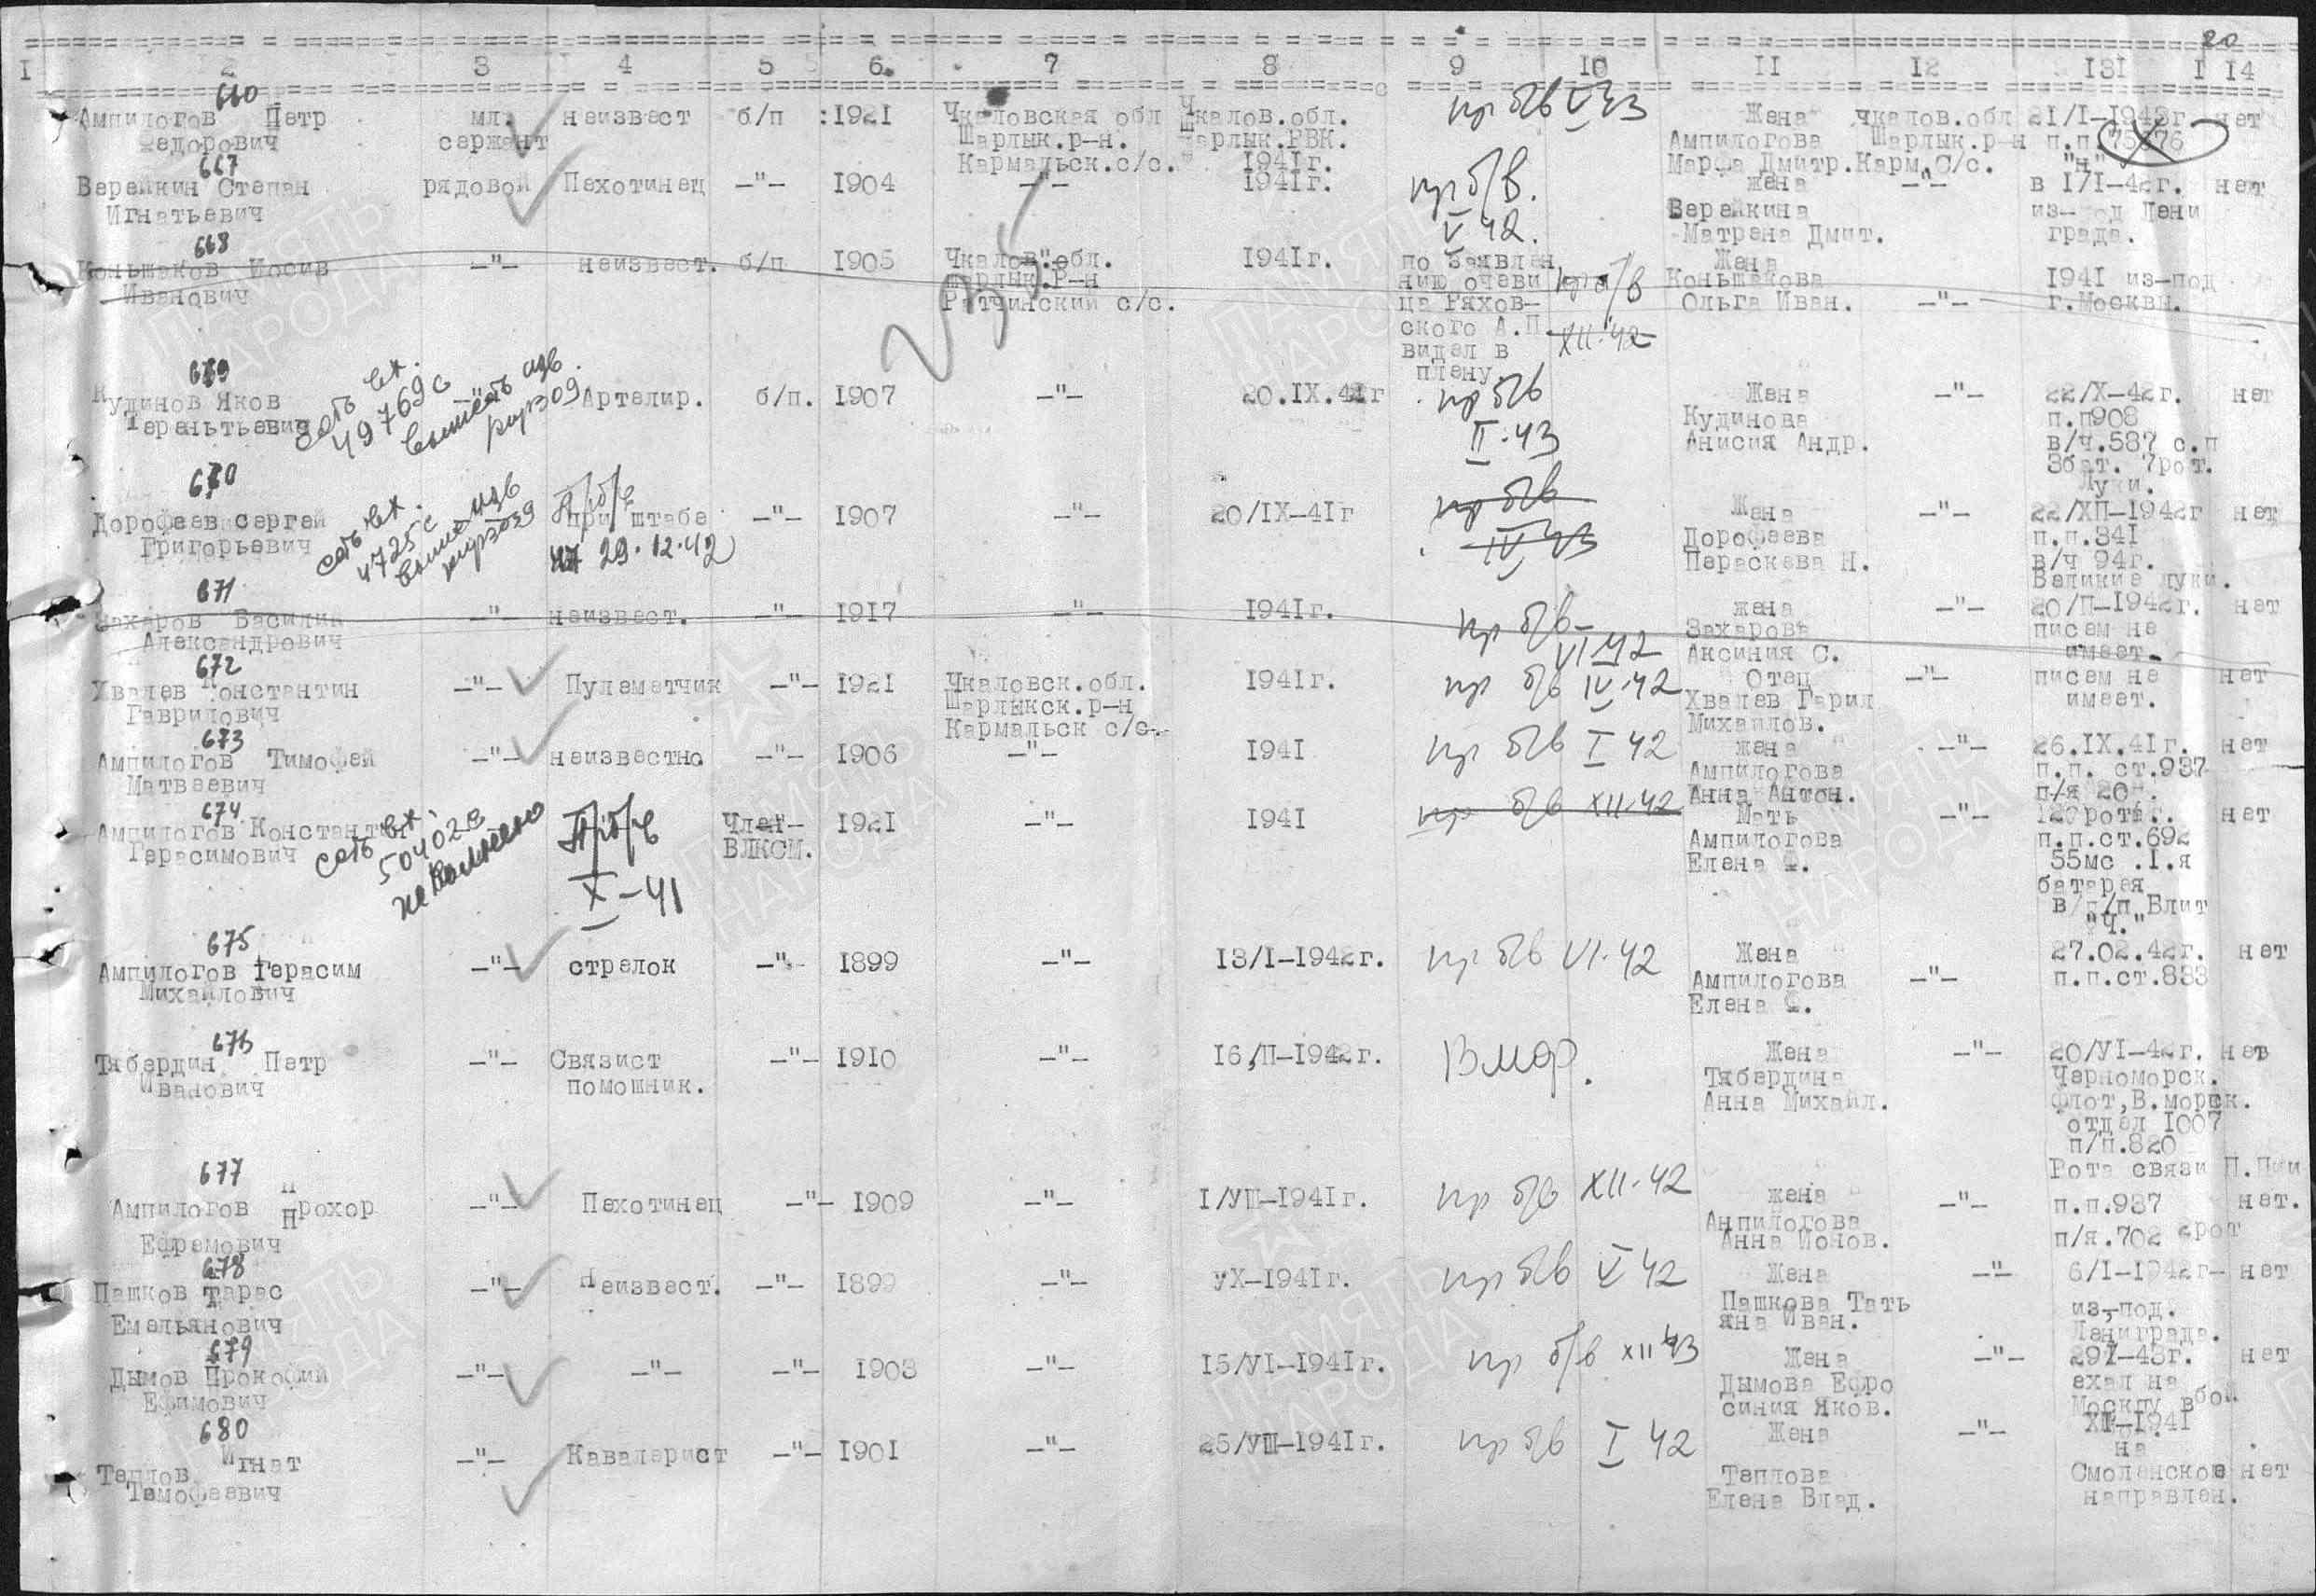 20
I 2 3 4 5 6. 7 8 9 10 II 12 13I I 14
660
Ампилогов Петр мл. неизвест б/п :1921 Чкаловская обл Чкалов.обл. пр б/в V 43 Жена чкалов.обл 21/I-1943г. нет
Федорович сержант Шарлык.р-н. Шарлык.РВК. Ампилогова Шарлык.р-н п.п.
Кармальск.с/с. 1941г. Марфа Дмитр. Карм.С/с. "н"
667
Верейкин Степан рядовой Пехотинец -"- 1904 -"- 1941г. пр б/в. жена -"- в I/I-42г. нет
Игнатьевич V 42. Верейкина из-под Лени
Матрена Дмит. града.
668
Коньшаков Иосив -"- неизвест. б/п 1905 Чкалов.обл. 1941г. по заявлен Жена
Иванович Шарлык.Р-н нию очеви пр б/в Коньшакова 1941 из-под
Ратчинский с/с. ца Ряхов- Ольга Иван. -"- г.Москвы.
ского А.П. XII.42
видел в
плену.
669
Кудинов Яков -"- Артелир. б/п. 1907 -"- 20.IX.41г пр б/в Жена -"- 22/X-42г. нет
Терентьевич есть вх. 49769с II.43 Кудинова п.п908
Анисия Андр. в/ч.587 с.п
3бат. 7рот.
Луки.
670
Дорофеев сергей п/б/ч при штабе -"- 1907 -"- 20/IX-41г пр б/в Жена -"- 22/XП-1942г нет
Григорьевич есть вх. 4725с 29.12.42 IV 43 Дорофеева п.п.341
Параскева Н. в/ч 94г.
Великие луки.
671
Захаров Василий -"- неизвест. -"- 1917 -"- 1941г. пр б/в- жена -"- 20/П-1942г. нет
Александрович VI 42 Захарова писем не
Аксиния С. имеет.
672
Хвалев Константин -"- Пулеметчик -"- 1921 Чкаловск.обл. 1941г. пр б/в IV.42 Отец -"- писем не нет
Гаврилович Шарлыкск.р-н Хвалев Гарил имеет.
Кармальск с/с. Михайлов.
673
Ампилогов Тимофей -"- неизвестно -"- 1906 -"- 1941 пр б/в I 42 жена -"- 26.IX.41г. нет
Матвеевич Ампилогова п.п. ст.937
Анна Антон. п/я 20
674
Ампилогов Константин п/б/ч Член 1921 -"- 1941 пр б/в XII.42 Мать -"- рота. нет
Герасимович есть вх. 50402с ВЛКСМ. Ампилогова п.п.ст.692
X-41 Елена Ф. 55мс .I.я
батарея
в/п/п Влит
"Ч."
675
Ампилогов Герасим -"- стрелок -"- 1899 -"- 13/I-1942г. пр б/в VI.42 Жена 27.02.42г. нет
Михайлович Ампилогова -"- п.п.ст.833
Елена Ф.
676
Тябердин Петр -"- Связист -"- 1910 -"- 16/П-1942г. ВМФ. Жена -"- 20/УI-42г. нет
Иванович помошник. Тябердина Черноморск.
Анна Михайл. Флот,В.морск.
отдел 1007
п/п.820
Рота связи
677
Ампилогов Прохор -"- Пехотинец -"- 1909 -"- I/УШ-1941г. пр б/в XII.42 жена -"- п.п.937 нет.
Ефремович Анпилогова п/я.702 2рот
Анна Ионов.
678
Пашков Тарас -"- Неизвест. -"- 1899 -"- УХ-1941г. пр б/в V 42 Жена -"- 6/I-1942г- нет
Емельянович Пашкова Тать из-под.
яна Иван. Ленинграда.
679
Дымов Прокофий -"- -"- -"- 1903 -"- 15/УI-1941г. пр б/в XII 43 Жена -"- 29I-43г. нет
Ефимович Дымова Ефро ехал на
синия Яков. Москву в бой
680
Теплов Игнат -"- Кавалерист -"- 1901 -"- 25/УШ-1941г. пр б/в I 42 Жена -"- ХП-1941
Тимофеевич Теплова на
Елена Влад. Смоленское нет
направлен.
ПАМЯТЬ НАРОДА